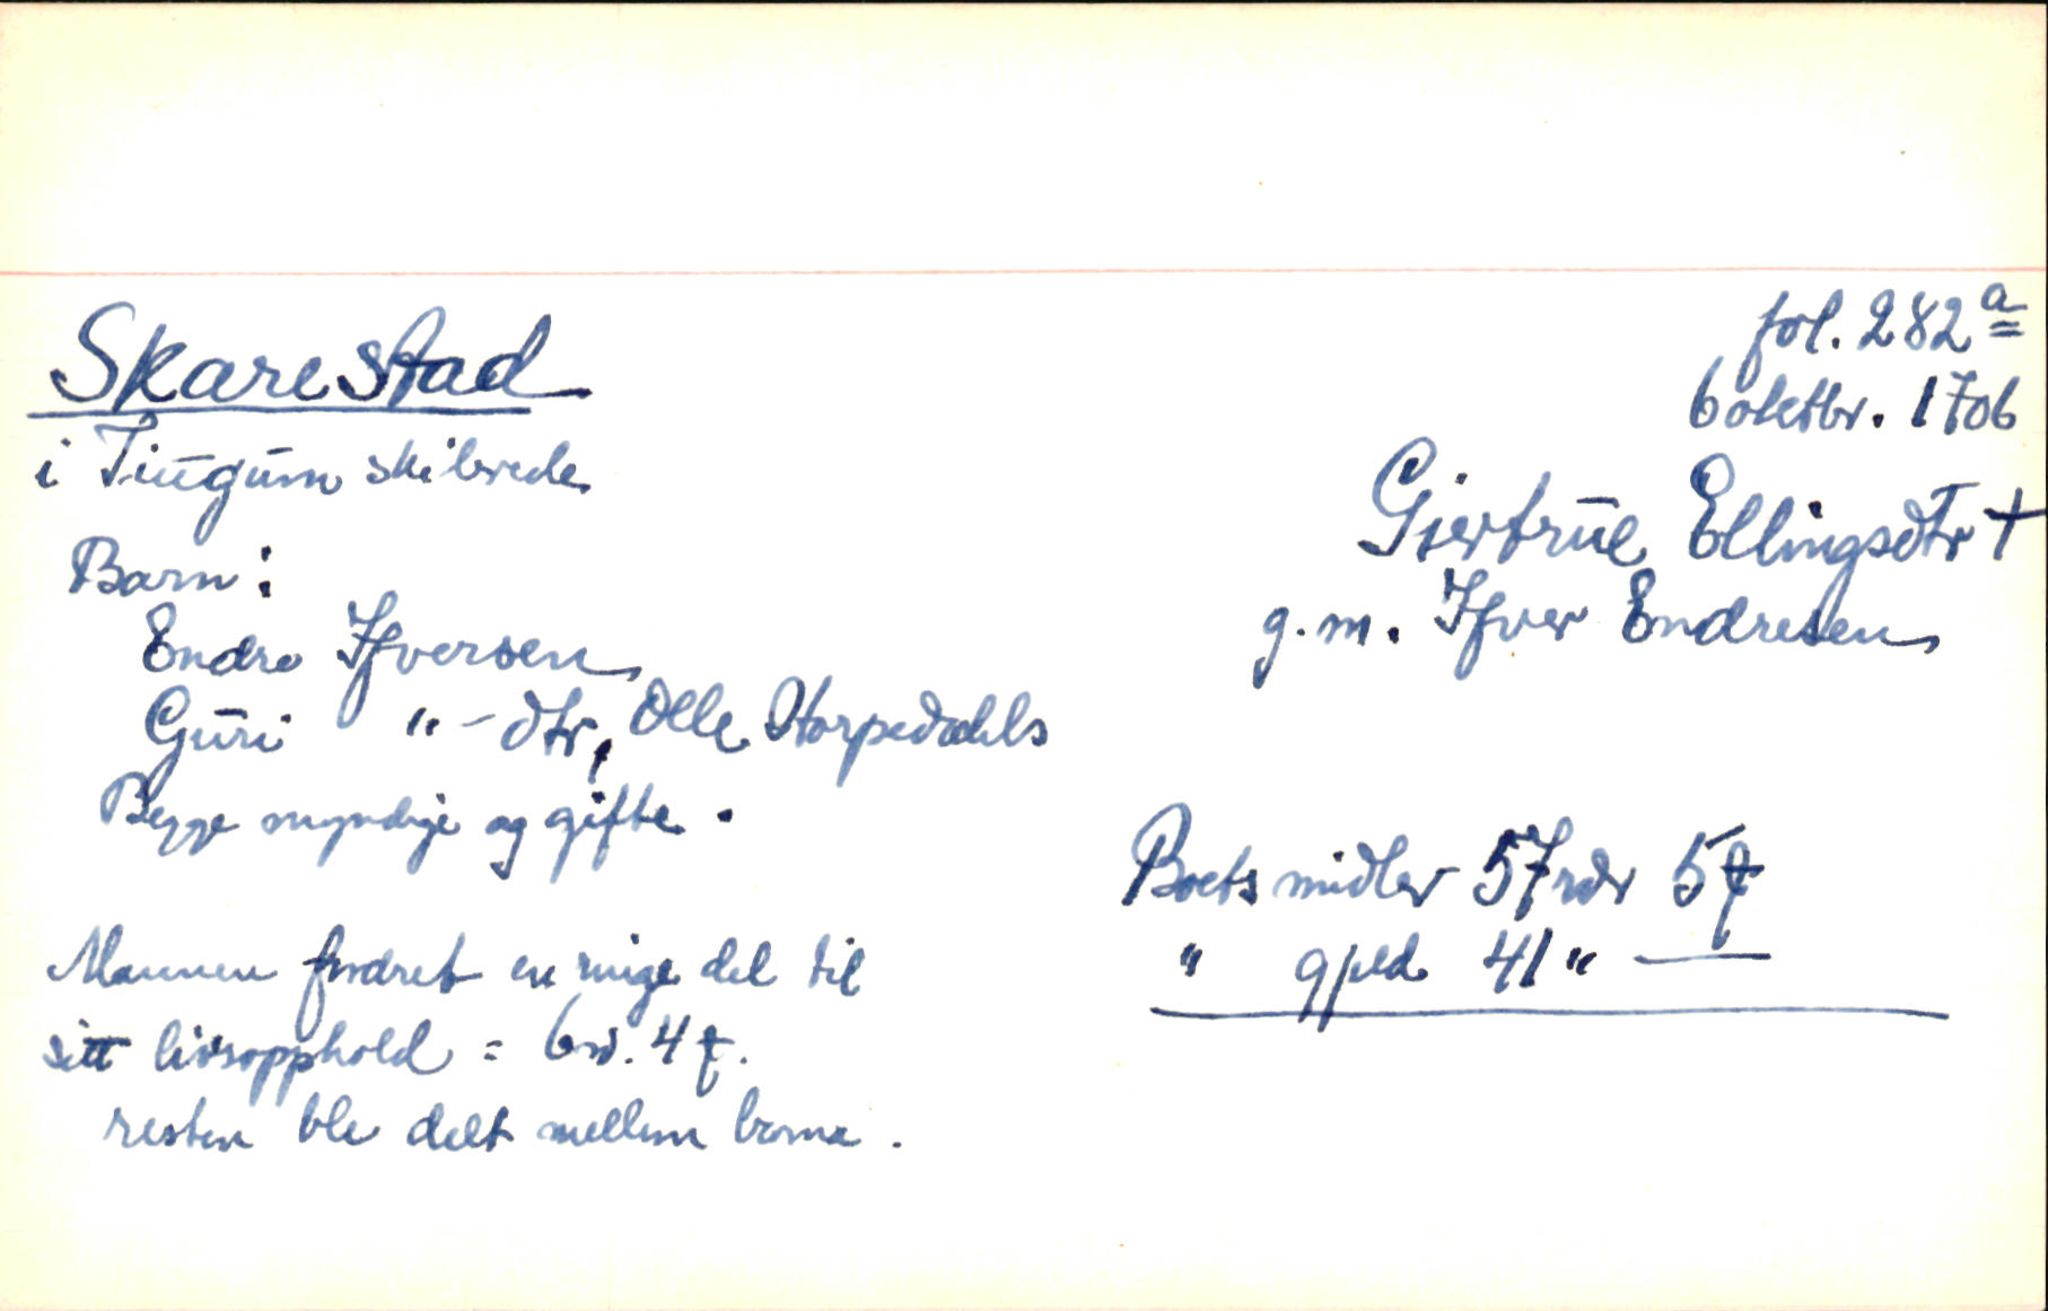 Skarestad
i Tiugum skibrede
Barn:
Endre Ifversen
Guri "-dtr, Olle Storpedahls
Begge myndige og gifte.
Mannen fordret en ringe del til
sitt livsopphold = 6 rd. 4 ꝑ.
resten ble delt mellem borna.
fol. 282 a
6 oktbr. 1706
Giertrue Ellingsdtr +
g.m. Ifver Endresen
Boets midler 57 rdr 5 ꝑ
" gjeld 41 " —